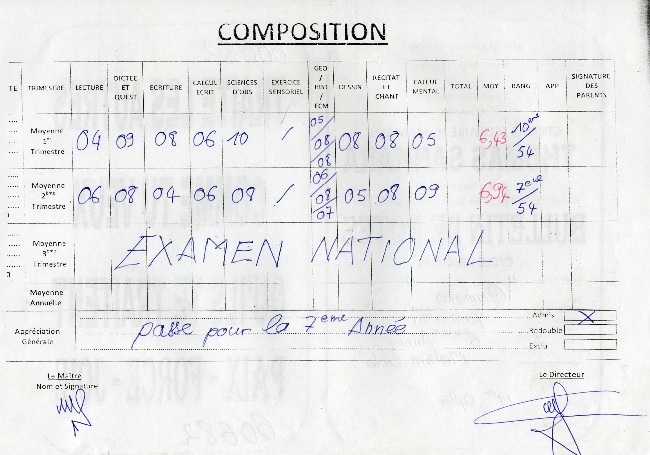 COMPOSITION
TE TRIMESTRE LECTURE DICTEE ET QUEST ECRITURE CALCUL ECRIT SCIENCES D'OBS EXERCICE SENSORIEL GEO / HIST / ECM DESSIN RECITAT ET CHANT CALCUL MENTAL TOTAL MOY RANG APP SIGNATURE DES PARENTS
Moyenne 1er Trimestre 04 09 08 06 10 / 05/08/08 08 08 05 6,43 10ème/54
Moyenne 2ème Trimestre 06 08 04 06 08 / 06/08/07 05 08 09 6,94 7ème/54
Moyenne 3ème Trimestre EXAMEN NATIONAL
Moyenne Annuelle
Appréciation Générale passe pour la 7ème Année
Admis X
Redouble
Exclu
Le Maître
Nom et Signature
Le Directeur